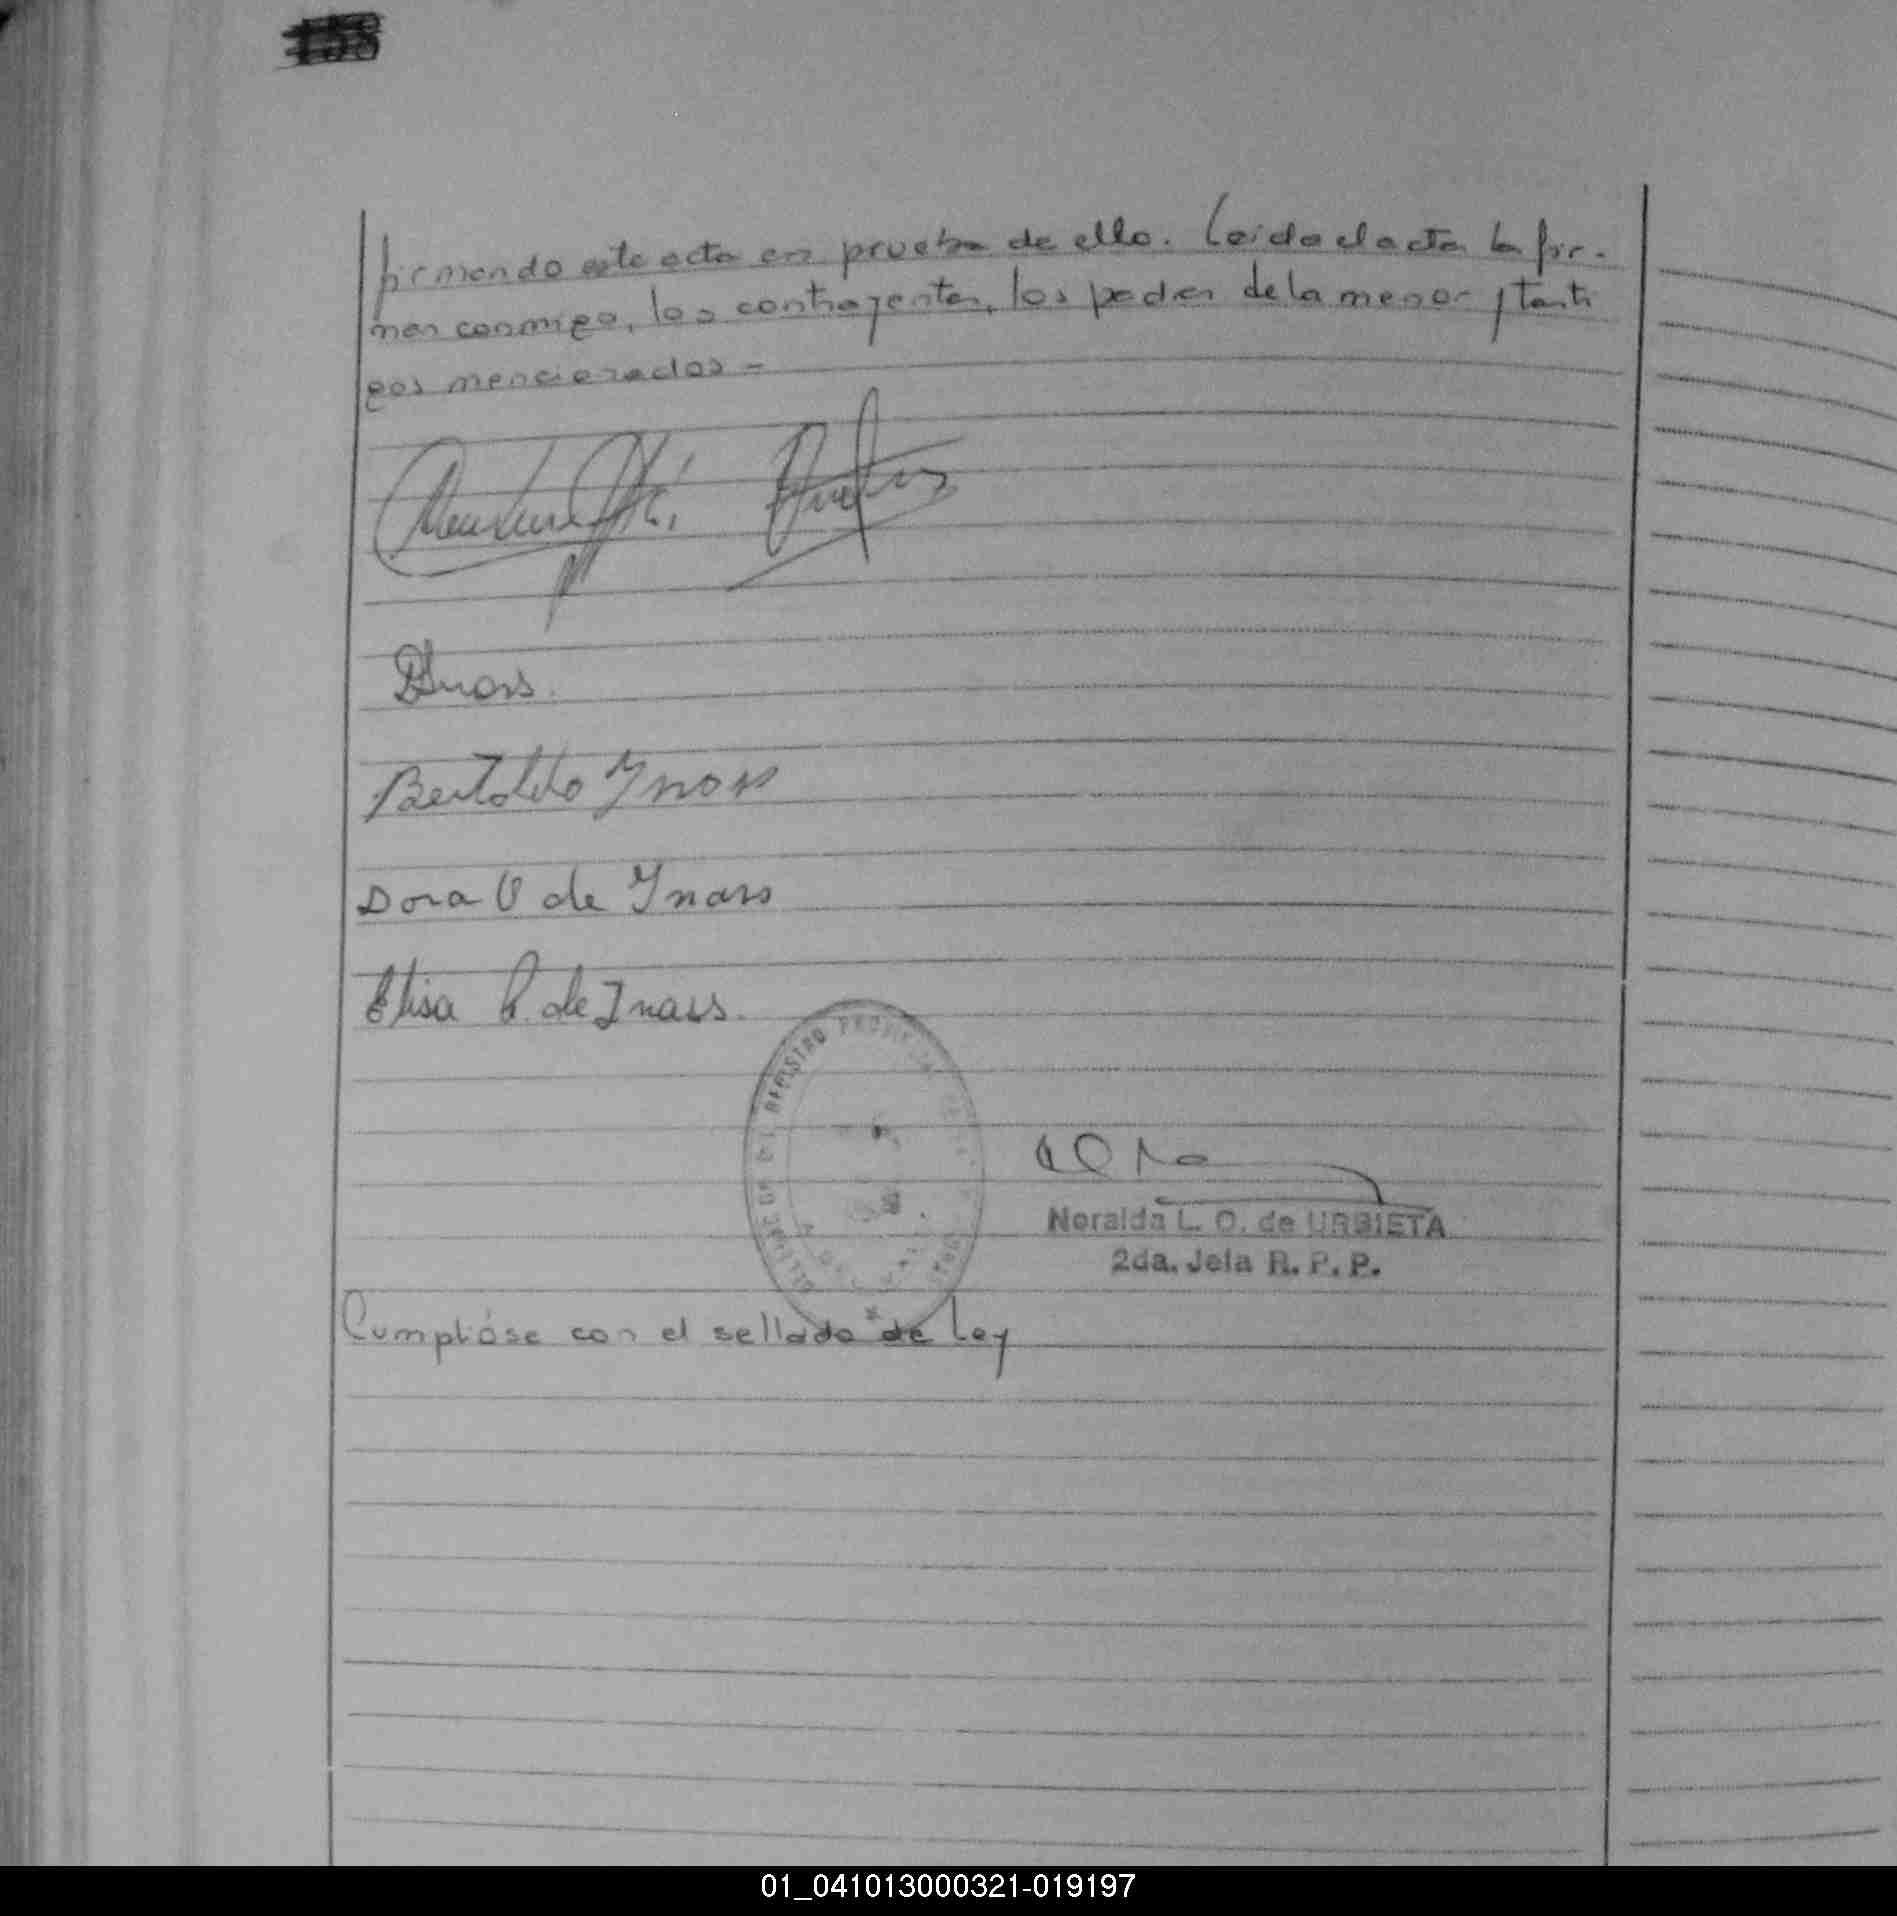 firmando este acta en prueba de ello. Leida el acta la fir-
man conmigo, los contrayentes, los padres de la menor y testi
gos mencionados -
Bertoldo Ynass
Dora V de Ynass
Elisa P. de Inass.
REGISTRO PROVINCIAL
Noralda L. O. de URBIETA
2da. Jefa R. P. P.
Cumplióse con el sellado de Ley
01_041013000321-019197